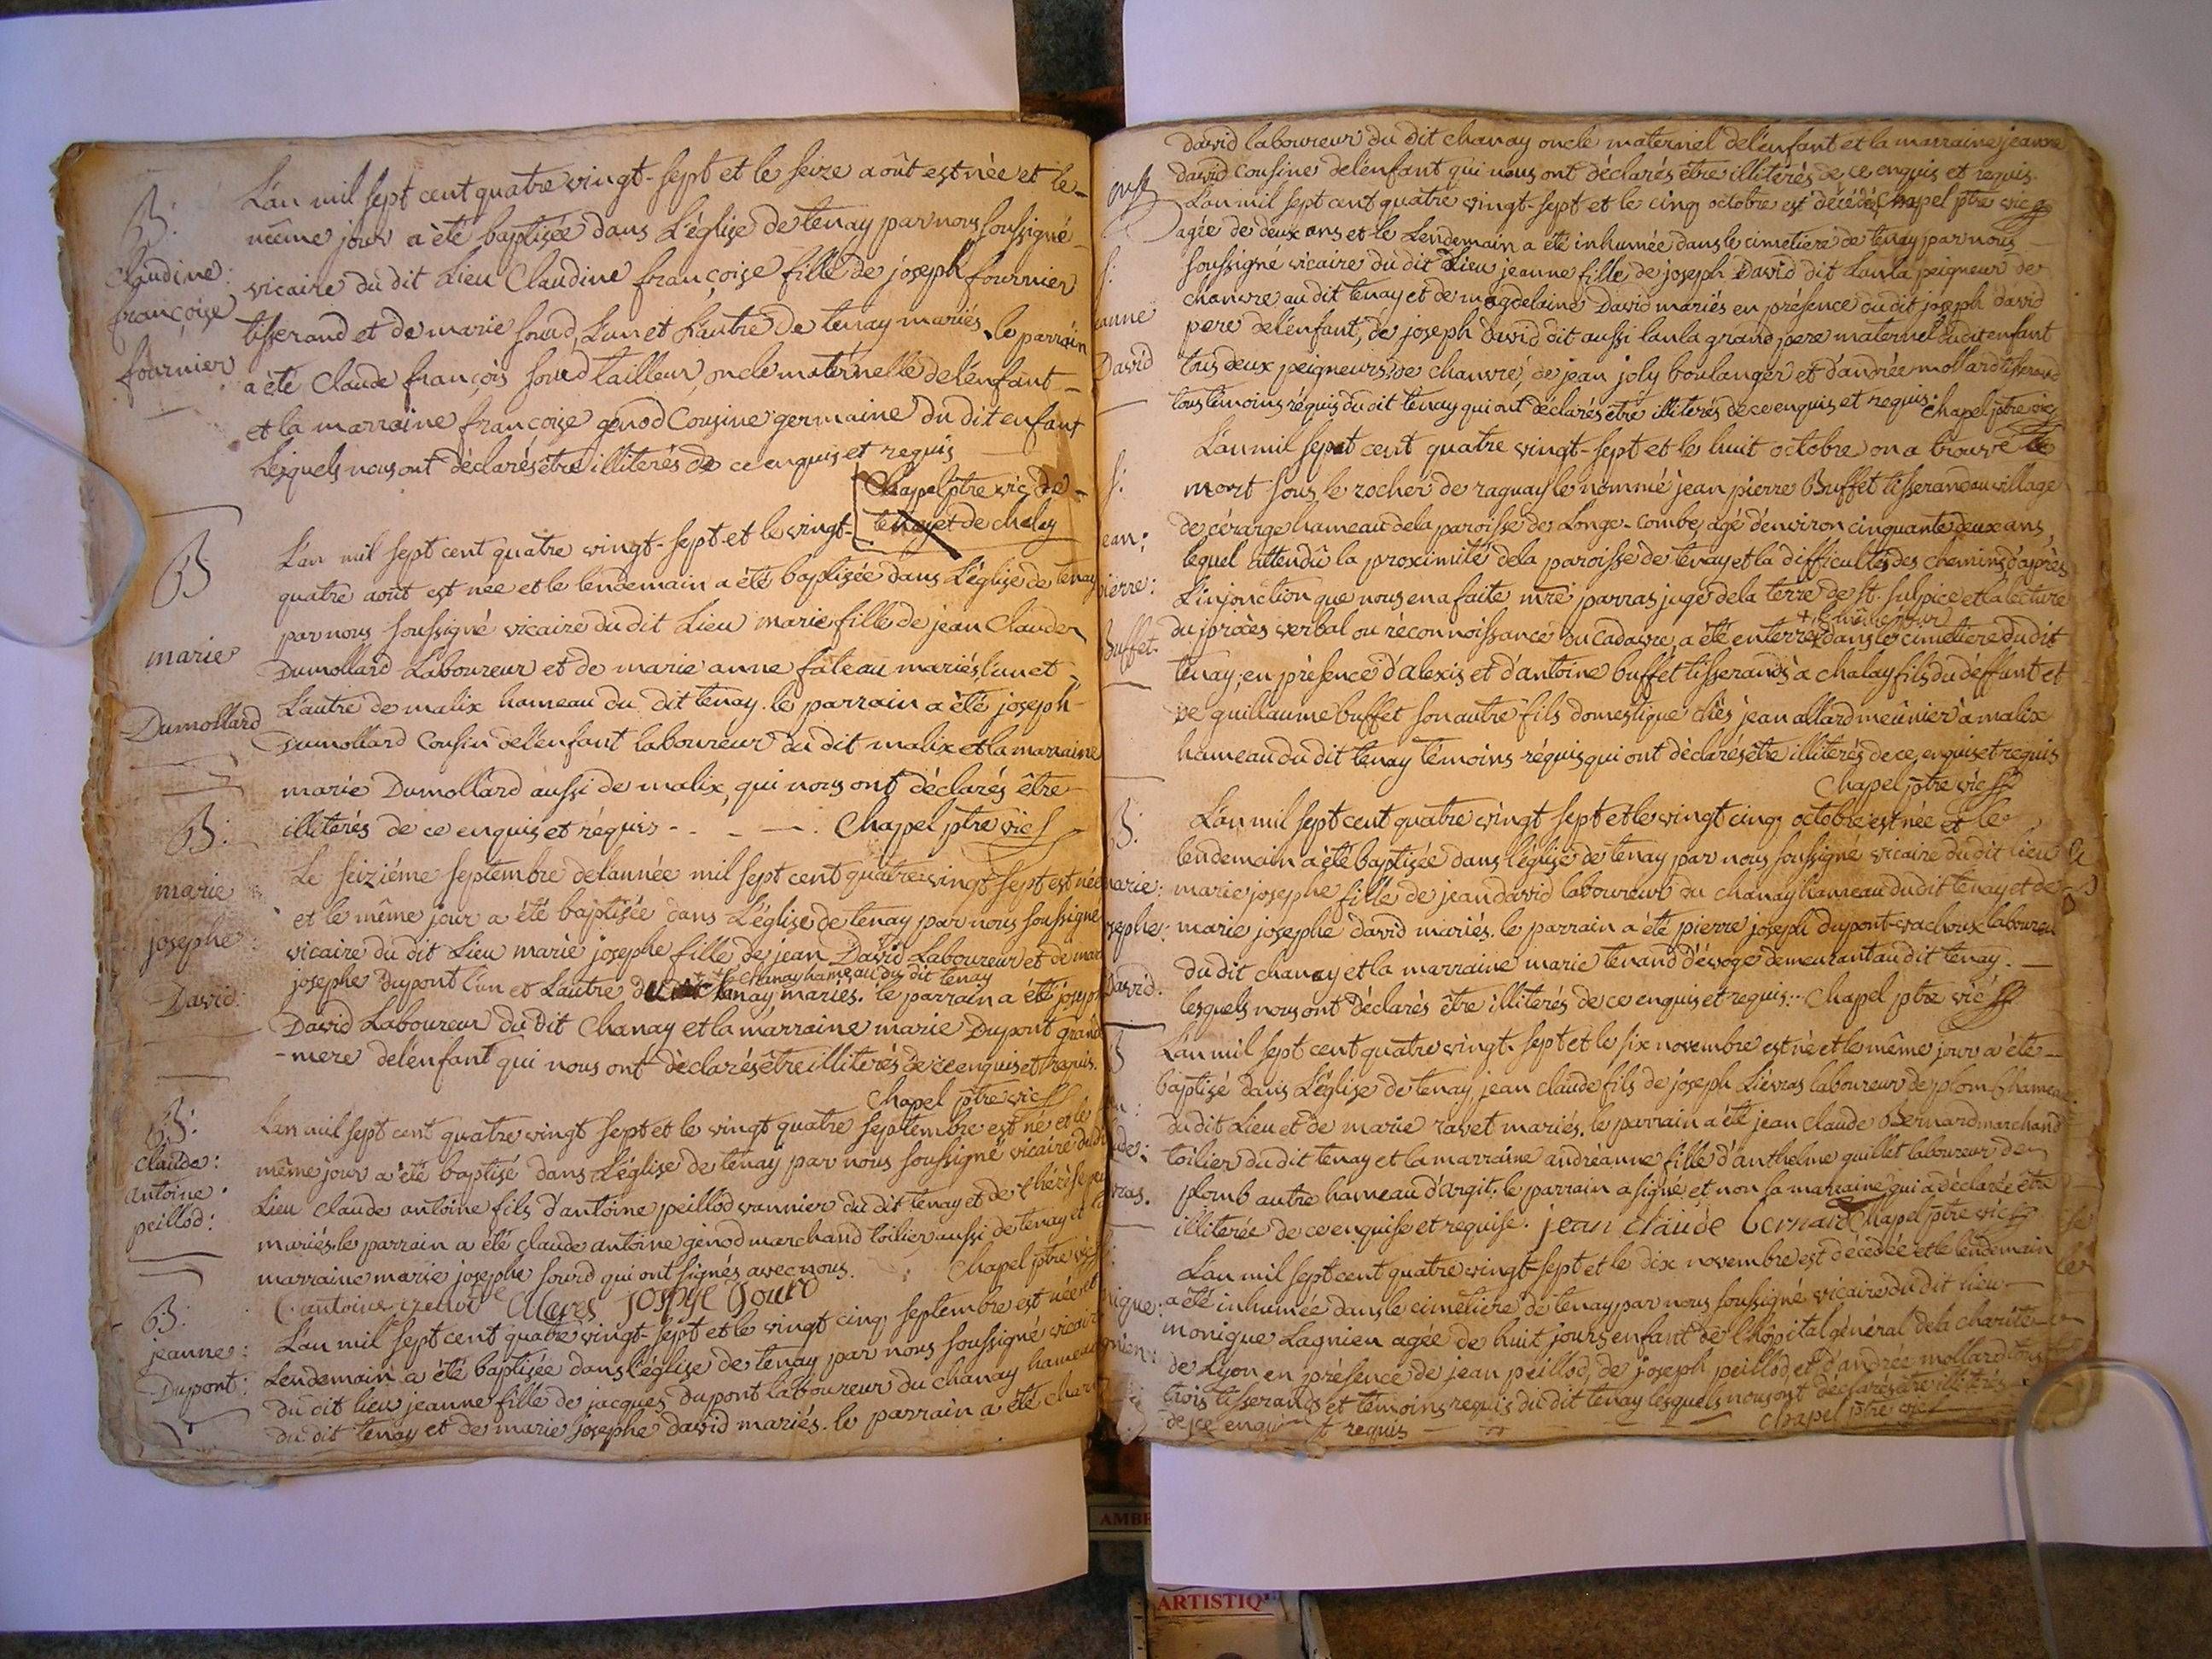 B:
Claudine:
françoise
fournier
L'an mil sept cent quatre vingt-sept et le seize août est née et le
même jour a été baptisée dans L'église de tenay par nous soussigné
vicaire du dit Lieu Claudine françoise fille de joseph fournier
tisserand et de marie sourd, L'un et L'autre de tenay mariés, le parrain
a été Claude françois sourd tailleur, oncle maternelle de l'enfant
et la marraine françoise genod Cousine germaine du dit enfant
Lesquels nous ont déclarés être illiterés de ce enquis et requis
Chapel ptre vic. de
tenay et de chaley
B
marie
Dumollard
L'an mil sept cent quatre vingt-sept et le vingt-
quatre août est née et le lendemain a été baptisée dans L'église de tenay
par nous soussigné vicaire du dit Lieu marie fille de jean Claude
Dumollard Laboureur et de marie anne fateau mariés, l'un et
L'autre de malix hameau du dit tenay. le parrain a été joseph
Dumollard Cousin de l'enfant laboureur du dit malix et la marraine
marie Dumollard aussi de malix, qui nous ont déclarés être
illiterés de ce enquis et requis - - - . Chapel ptre vic
B:
marie
josephe:
David:
Le seiziéme septembre de l'année mil sept cent quatre vingt sept est née
et le même jour a été baptisée dans L'église de tenay par nous soussigné
vicaire du dit Lieu marie josephe fille de jean David Laboureur et de marie
+ chanay hameau du dit tenay
josephe Dupont L'un et L'autre du tenay mariés. le parrain a été joseph
David Laboureur du dit Chanay et la marraine marie Dupont grand
-mere de l'enfant qui nous ont déclarés être illiterés de ce enquis et requis.
Chapel ptre vic
B:
Claude:
antoine.
peillod:
L'an mil sept cent quatre vingt sept et le vingt quatre septembre est né et le
même jour a été baptisé dans L'église de tenay par nous soussigné vicaire du dit
Lieu Claude antoine fils d'antoine peillod vannier du dit tenay et de thérèse
mariés. le parrain a été claude antoine genod marchand toilier aussi de tenay et la
marraine marie josephe sourd qui ont signés avec nous. Chapel ptre vic
C antoine genod Marie Josephe Sourd
B:
jeanne:
Dupont:
L'an mil sept cent quatre vingt-sept et le vingt cinq septembre est née et le
Lendemain a été baptisée dans L'église de tenay par nous soussigné vicaire
du dit lieu jeanne fille de jacques dupont laboureur du chanay hameau
du dit tenay et de marie josephe david mariés. le parrain a été
david laboureur du dit chanay oncle maternel de l'enfant et la marraine jeanne
david Cousine de l'enfant qui nous ont déclarés être illiterés de ce enquis et requis.
Chapel ptre vic
S:
jeanne
David
L'an mil sept cent quatre vingt-sept et le cinq octobre est décédée
agée de deux ans et le Lendemain a été inhumée dans le cimetiere de tenay par nous
soussigné vicaire du dit Lieu jeanne fille de joseph David dit Lanla peigneur de
chanvre au dit tenay et de magdelaine David mariés en présence du dit joseph david
pere de l'enfant, de joseph david dit aussi lanla grand pere maternel du dit enfant
tous deux peigneurs de chanvre, de jean joly boulanger et d'andrée mollard tisserand
tous témoins réquis du dit tenay qui ont déclarés être illiterés de ce enquis et requis. Chapel ptre vic
S:
jean:
pierre:
Buffet.
L'an mil sept cent quatre vingt-sept et le huit octobre on a trouvé
mort sous le rocher de raguay le nommé jean pierre Buffet tisserand au village
de cérarge hameau de la paroisse de Longe-combe, agé d'environ cinquante deux ans,
lequel attendû la proximité de la paroisse de tenay et la difficultés des chemins d'après
L'injonction que nous en a faite mre parras juge de la terre de st. sulpice et la lecture
+ le même jour
du procès verbal ou réconnoissance du cadavre, a été enterré + dans le cimetiere du dit
tenay, en présence d'alexis et d'antoine buffet tisserands à chalay fils du deffunt et
de guillaume buffet son autre fils domestique chès jean allard meûnier à malix
hameau du dit tenay témoins réquis qui ont déclarés être illiterés de ce, enquis et requis
Chapel ptre vic
B:
marie:
josephe:
David.
L'an mil sept cent quatre vingt sept et le vingt cinq octobre est née et le
lendemain a été baptisée dans l'église de tenay par nous soussigné vicaire du dit lieu
marie josephe fille de jean david laboureur du chanay hameau du dit tenay et de
marie josephe david mariés. le parrain a été pierre joseph dupont-vachoux laboureur
du dit chanay et la marraine marie tenand d'évoge demeurant au dit tenay.
lesquels nous ont déclarés être illiterés de ce enquis et requis... Chapel ptre vic
B
L'an mil sept cent quatre vingt-sept et le six novembre est né et le même jour a été
baptisé dans L'église de tenay, jean claude fils de joseph Lievras laboureur de plomb hameau
du dit Lieu et de marie ravet mariés. le parrain a été jean claude Bernard marchand
toilier du dit tenay et la marraine andréanne fille d'anthelme guillet laboureur de
plomb autre hameau d'argit; le parrain a signé et non la marraine qui a déclarée être
illiterée de ce enquise et requise. jean claude bernard Chapel ptre vic
L'an mil sept cent quatre vingt-sept et le dix novembre est décédée et le lendemain
a été inhumée dans le cimetiere de tenay par nous soussigné vicaire du dit lieu
monique Lagnien agée de huit jours enfant de l'hôpital général de la charité
de Lyon en présence de jean peillod, de joseph peillod, et d'andrée mollard tous
trois tisserands et témoins requis du dit tenay lesquels nous ont déclarés être illiterés
de ce enquis et requis Chapel ptre vic
AMBE
ARTISTIQ